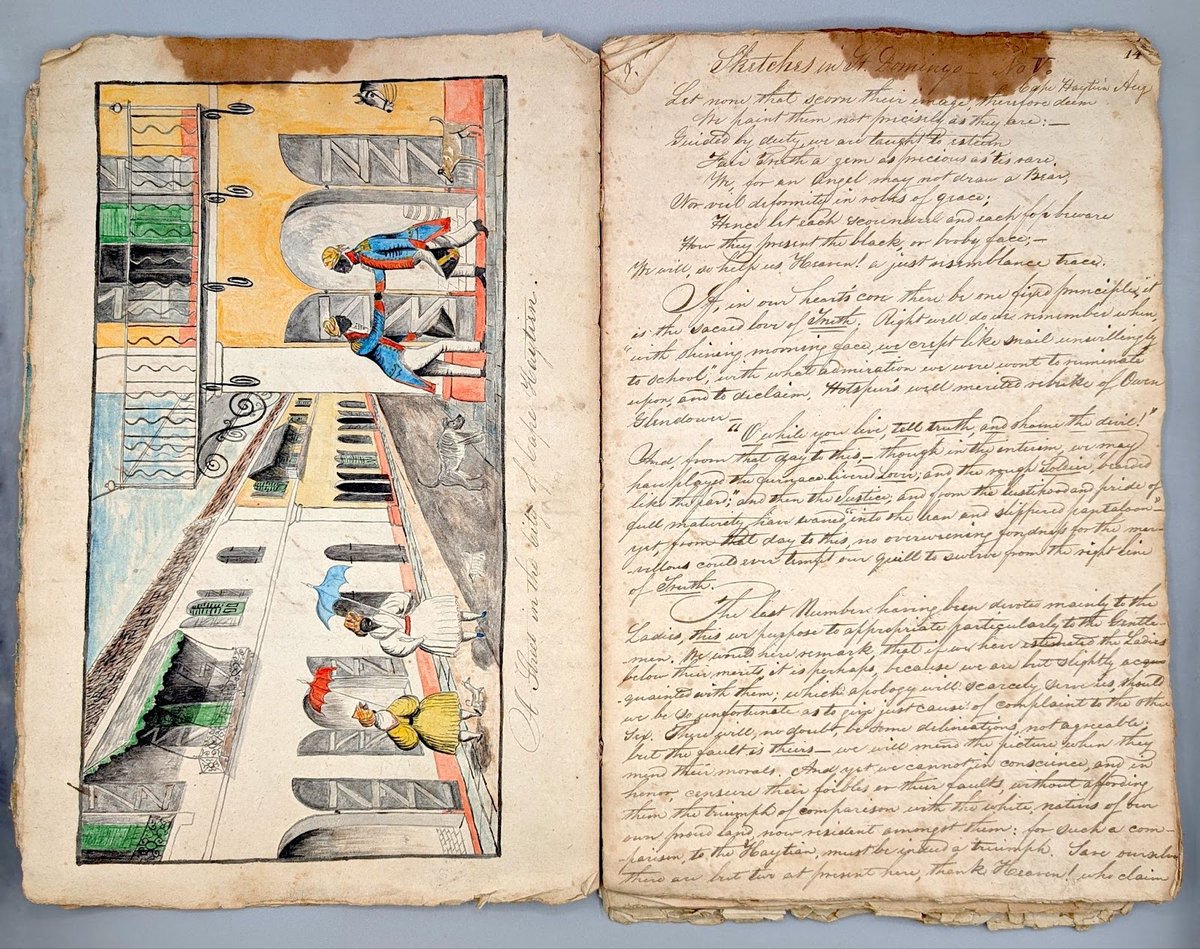 A Street in the City of Cape Haytien.
9.
14
Sketches in St. Domingo — No. V.
Cape Haytien Aug
Let none that scorn their image, therefore deem
We paint them not precisely as they are:—
Guided by duty, we are taught to esteem
Fair truth a gem as precious as tis rare.
We, for an Angel may not draw a Bear,
Nor veil deformity in robes of grace;
Hence let each scoundrel and each fop beware
How they present the black, or booby face,—
We will, so help us, Heaven! a just resemblance trace.
If, in our heart's core there be one fixed principle, it
is the sacred love of Truth. Right well do we remember when,
"with shining morning face, we crept like snail unwillingly
to school," with what admiration we were wont to ruminate
upon, and to declaim, Hotspur's well merited rebuke of Owen
Glendower—
"O, while you live tell truth, and shame the devil!"
And from that day to this,—though in the interim, we may
have played the furnace livered Lover; and the rough Soldier "bearded
like the pard;" and then the Justice; and from the lustihood and pride of
full maturity, have waned "into the lean and slippered pantaloon"—
yet, from that day to this, no overweening fondness for the mar-
vellous could ever tempt our quill to swerve from the right line
of Truth.
The last Number having been devoted mainly to the
Ladies, this we purpose to appropriate particularly to the Gentle-
men. We would here remark that if we have estimated the Ladies
below their merits, it is perhaps, because we are but slightly acqu
quainted with them; which apology will scarcely serve us, should
we be so unfortunate as to give just cause of complaint to the other
Sex. There will, no doubt, be some delineations, not agreeable;
but the fault is theirs — we will mend the picture when they
mend their morals. And yet we cannot in conscience, and in
honor censure their foibles or their faults, without affording
them the triumph of comparison with the white natives of our
own proud land, now resident amongst them: for such a com-
-parison, to the Haytian, must be indeed a triumph. Save ourselves
there are but two at present here, thank Heaven! who claim